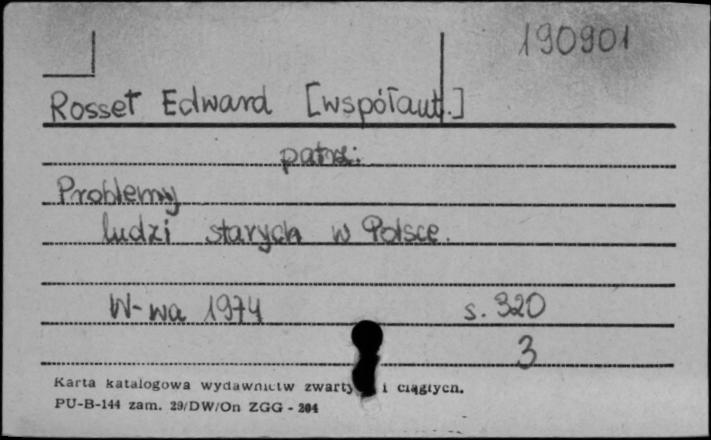 190901
Rosset Edward [współaut.]
patrz:
Problemy
ludzi starych w Polsce.
W-wa 1974 s. 320
3
Karta katalogowa wydawnictw i ciągłych.
PU-B-144 zam. 29/DW/On ZGG - 204